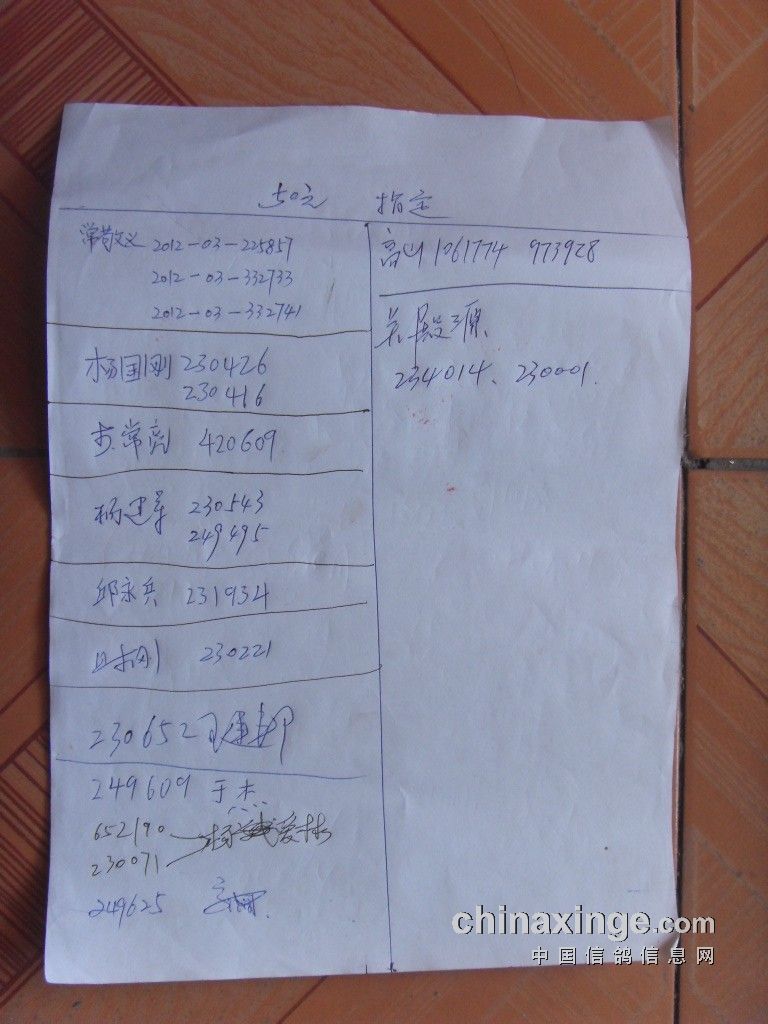 50元 指定
常敬义 2012-03-225857
2012-03-332733
2012-03-332741
杨国刚 230426
230416
常亮 420609
杨建军 230543
249495
邱永兵 231934
230221
230652
249609 于杰
652190
230071
249625
高山 1061774 973928
234014、230001.
chinaxinge.com
中国信鸽信息网